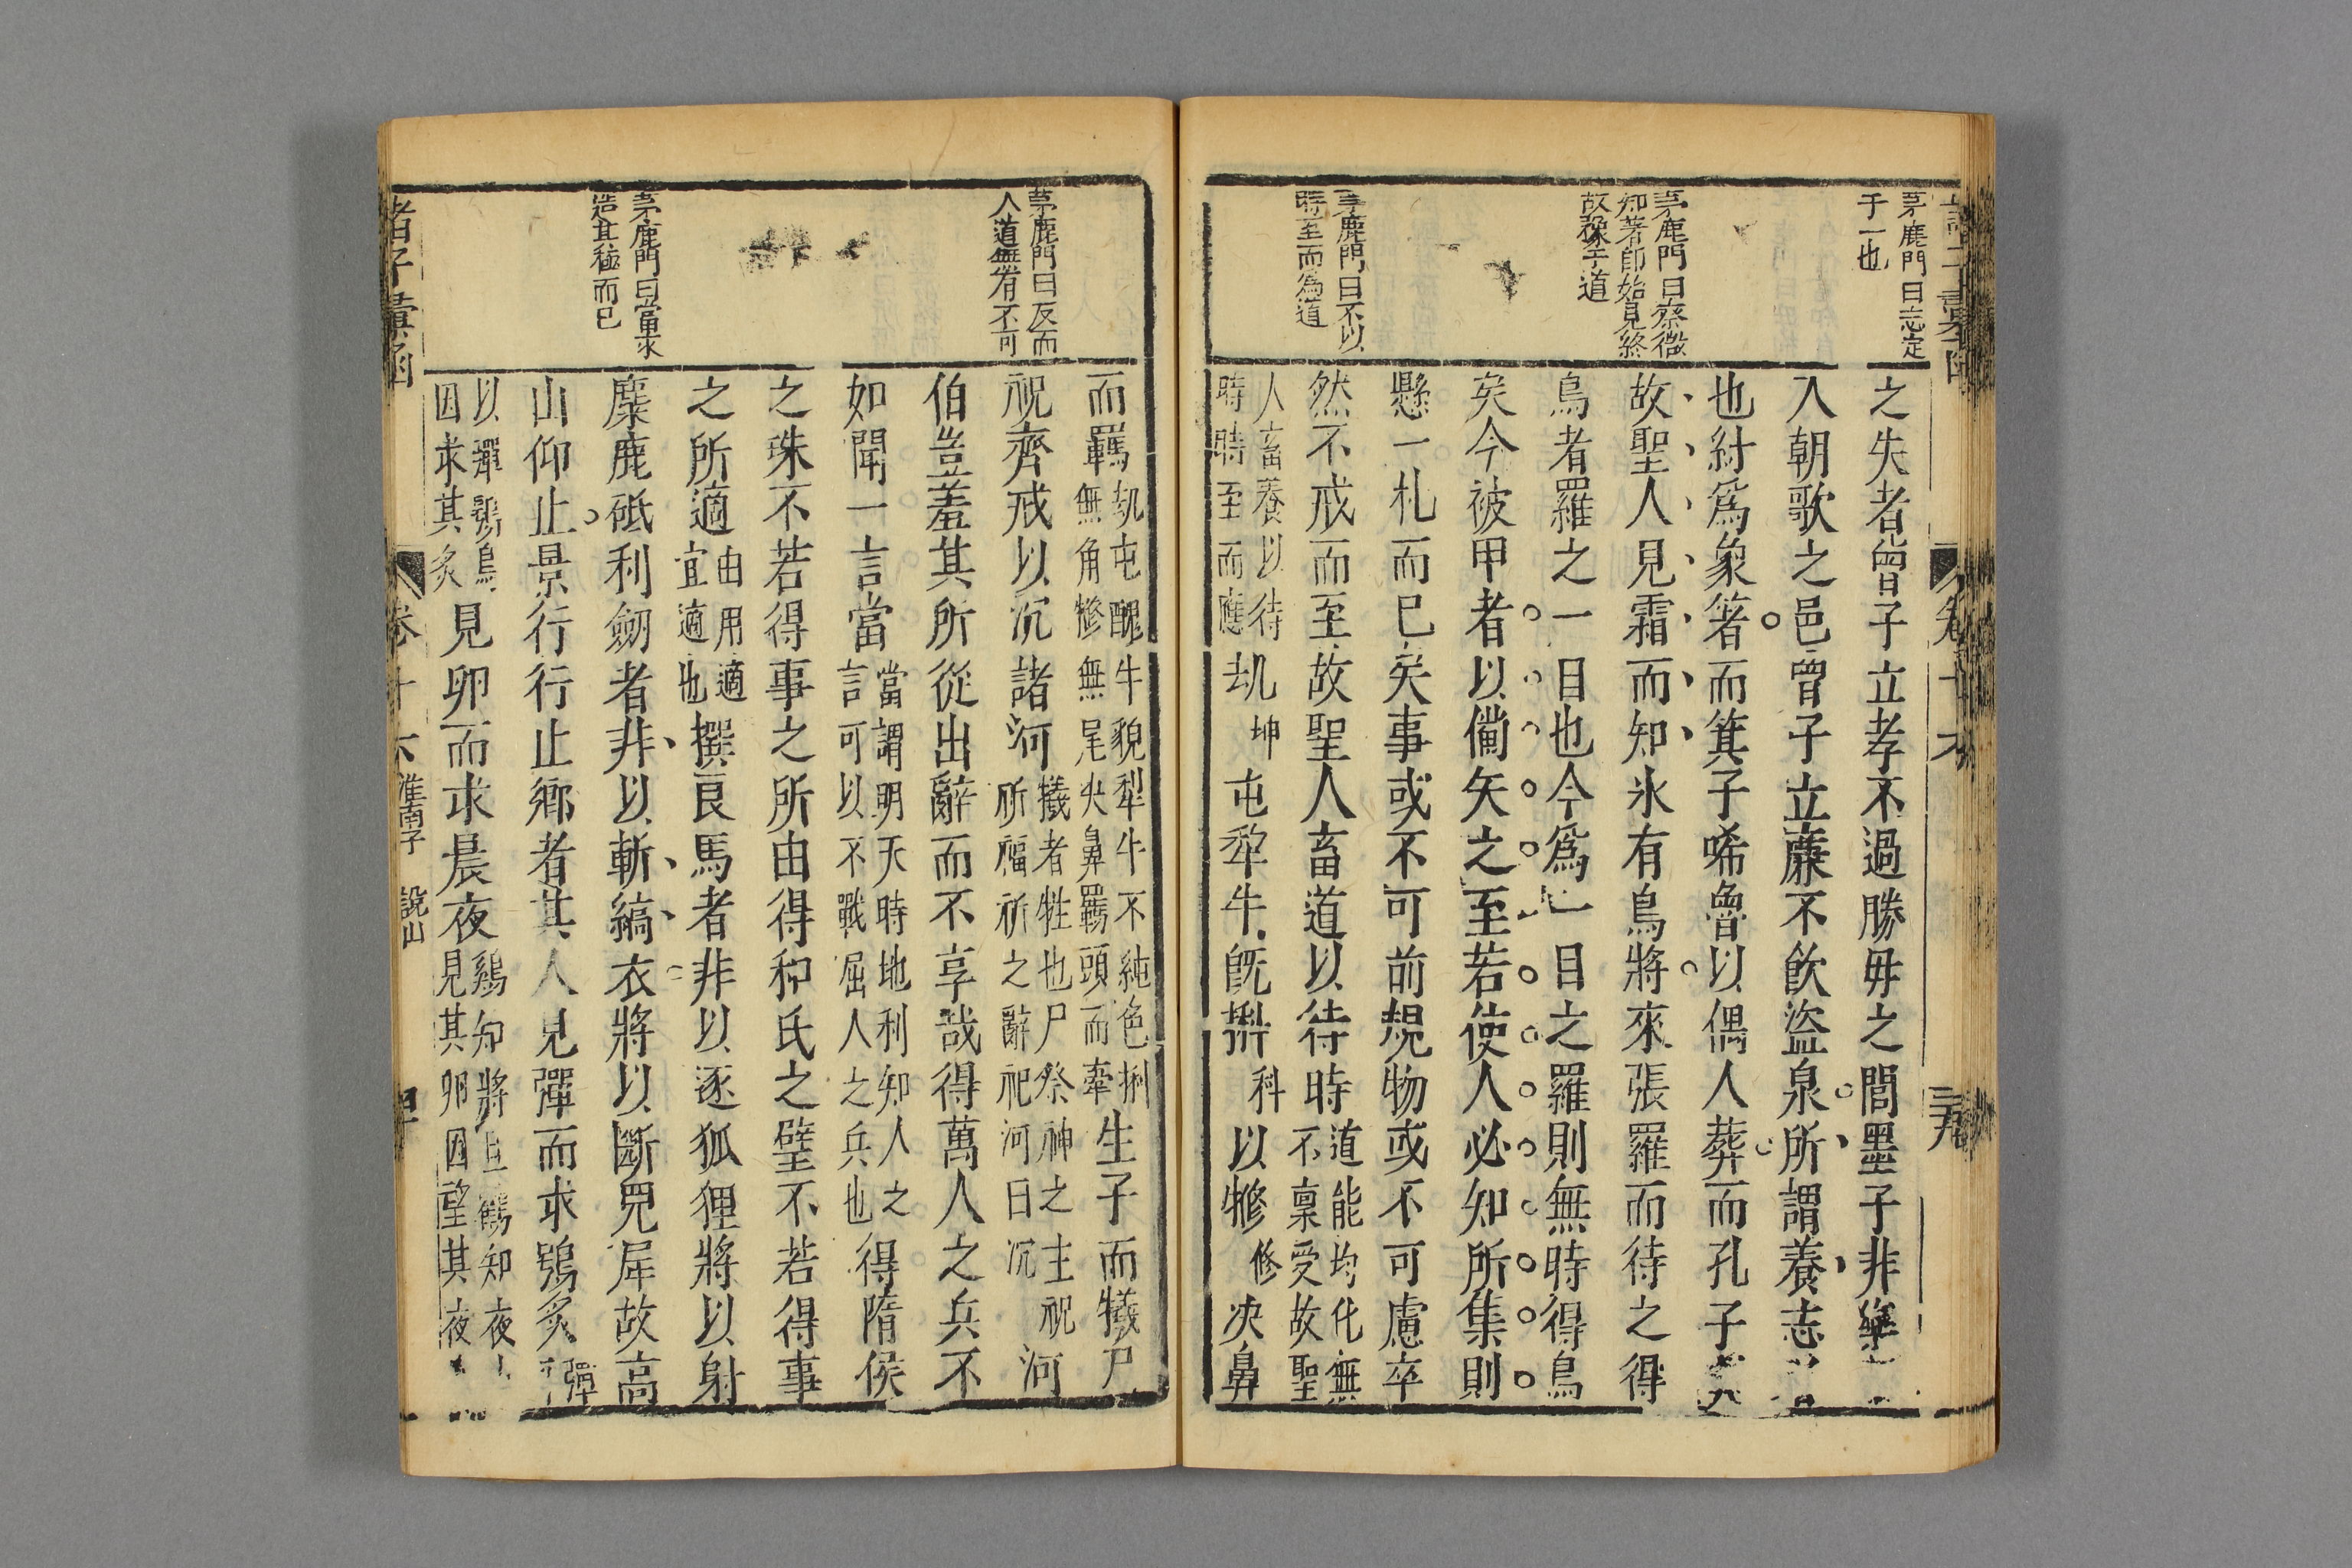 茅鹿門曰志定
于一也
茅鹿門曰察微
知著即始見終
故務乎道
茅鹿門曰不以
時至而為道
之失者曾子立孝不過勝毋之閭墨子非樂
入朝歌之邑曾子立廉不飲盜泉所謂養志
也紂爲象箸而箕子唏魯以偶人葬而孔子
故聖人見霜而知氷有鳥將來張羅而待之得
鳥者羅之一目也今爲一目之羅則無時得鳥
矣今被甲者以備矢之至若使人必知所集則
懸一札而已矣事或不可前規物或不可慮卒
然不戒而至故聖人畜道以待時道能均化無
不稟受故聖
人畜養以待
時時至而應
劫坤屯犂牛旣㸹科以犙修决鼻
諸子彙函
卷十六
淮南子
說山
茅鹿門曰反而
人道無有不可
茅鹿門曰當求
造其極而已
而羈劫屯醜牛貌犁牛不純色㸹
無角犙無尾决鼻羈頭而牽
生子而犧尸
祝齊戒以沉諸河犧者牲也尸祭神之主祝
祈福祈之辭祀河曰沉
河
伯豈羞其所從出辭而不享哉得萬人之兵不
如聞一言當當謂明天時地利知人之
言可以不戰屈人之兵也
得隋侯
之珠不若得事之所由得和氏之璧不若得事
之所適由用適
宜適也
撰良馬者非以逐狐狸將以射
麋鹿砥利劒者非以斬縞衣將以斷兕犀故高
山仰止景行行止鄉者其人見彈而求鴞炙彈
以彈鴞鳥
因求其炙
見卵而求晨夜雞知將旦鶴知夜
見其卵因望其夜